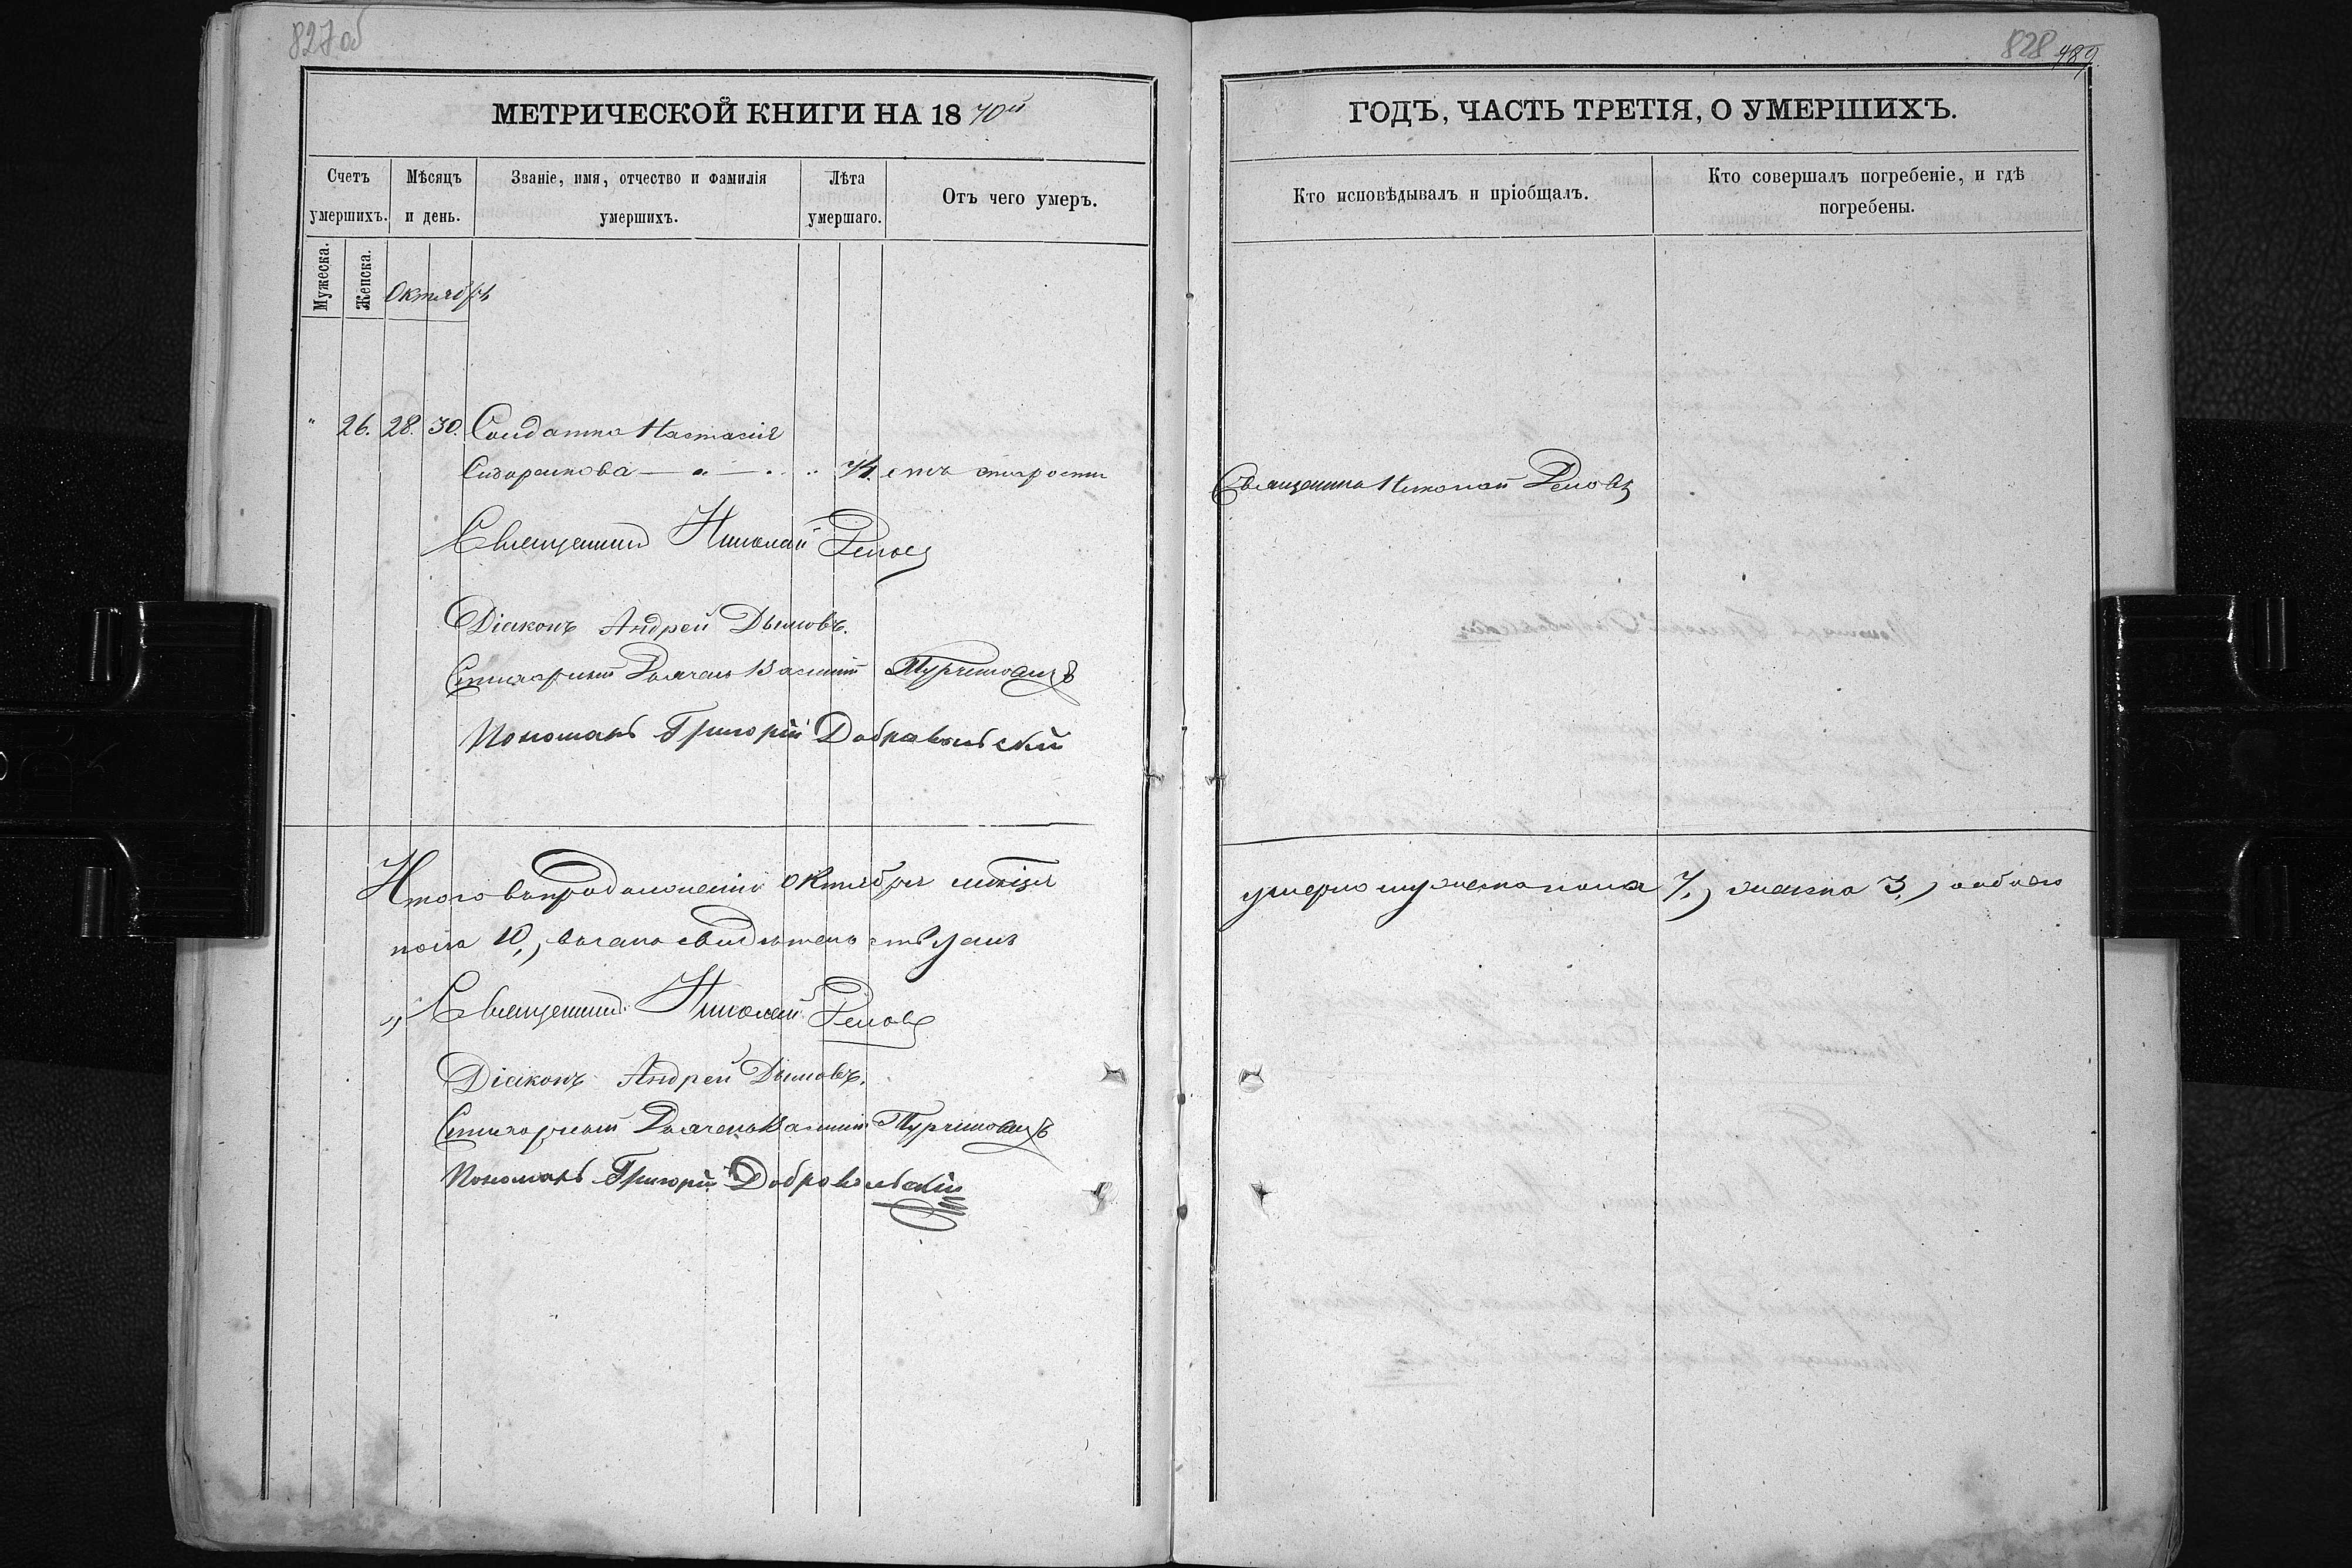 827 об
МЕТРИЧЕСКОЙ КНИГИ НА 18 70й
Счетъ умершихъ.
Мѣсяцъ и день.
Званіе, имя, отчество и фамилія умершихъ.
Лѣта умершаго.
Отъ чего умеръ.
Мужеска.
Женска.
Октябрь
" 26. 28. 30. Солдатка Настасія
Сидоренкова — " — . .. 74. отъ старости
Священникъ Николай
Діаконъ Андрей Дымовъ.
Стихарный Дьячекъ Василій
Пономарь Григорій Добровольскій
Итого въ продолженіи Октября мѣсяца
пола 10, въ чемъ свидѣтельствуемъ
Священникъ Николай
Діаконъ Андрей Дымовъ.
Стихарный Дьячекъ Василій
Пономарь Григорій Добровольскій
828 489
ГОДЪ, ЧАСТЬ ТРЕТІЯ, О УМЕРШИХЪ.
Кто исповѣдывалъ и пріобщалъ.
Кто совершалъ погребеніе, и гдѣ погребены.
Священникъ Николай
умерло мужеска пола 7, женска 3, обоего